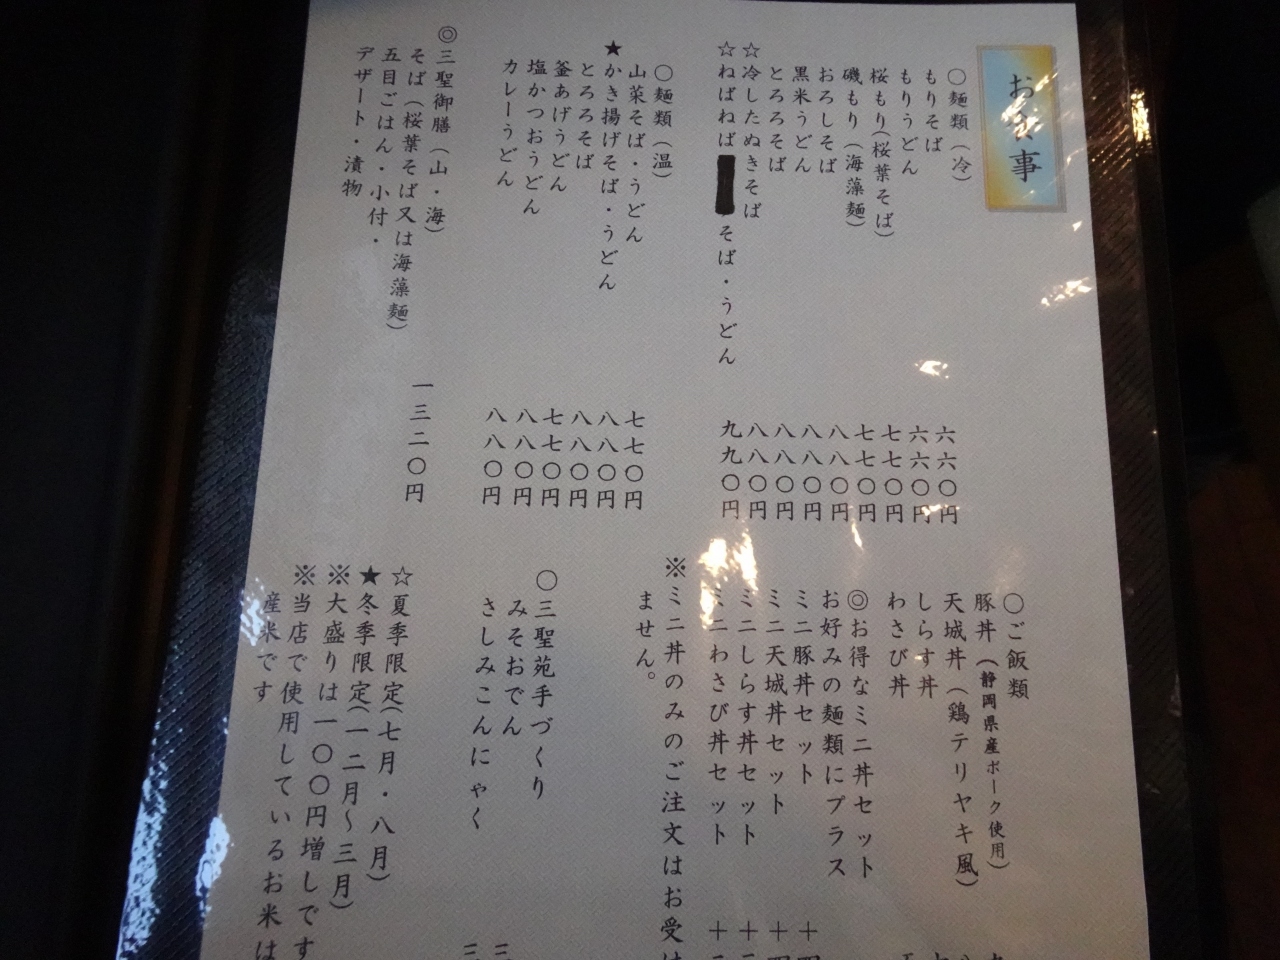 お食事
○麺類（冷）
もりそば 六六〇円
もりうどん 六六〇円
桜もり（桜葉そば） 七七〇円
磯もり（海藻麺） 七七〇円
おろしそば 八八〇円
黒米うどん 八八〇円
とろろそば 八八〇円
☆冷したぬきそば 八八〇円
☆ねばねば そば・うどん 九九〇円
○麺類（温）
山菜そば・うどん 七七〇円
★かき揚げそば・うどん 八八〇円
とろろそば 八八〇円
釜あげうどん 七七〇円
塩かつおうどん 八八〇円
カレーうどん 八八〇円
◎三聖御膳（山・海）
そば（桜葉そば又は海藻麺） 一三二〇円
五目ごはん・小付・
デザート・漬物
○ご飯類
豚丼（静岡県産ポーク使用）
天城丼（鶏テリヤキ風）
しらす丼
わさび丼
◎お得なミニ丼セット
お好みの麺類にプラス
ミニ豚丼セット ＋
ミニ天城丼セット ＋
ミニしらす丼セット ＋
ミニわさび丼セット ＋
※ミニ丼のみのご注文はお受け
ません。
○三聖苑手づくり
みそおでん
さしみこんにゃく
☆夏季限定（七月・八月）
★冬季限定（一二月～三月）
※大盛りは一〇〇円増しです
※当店で使用しているお米は
産米です